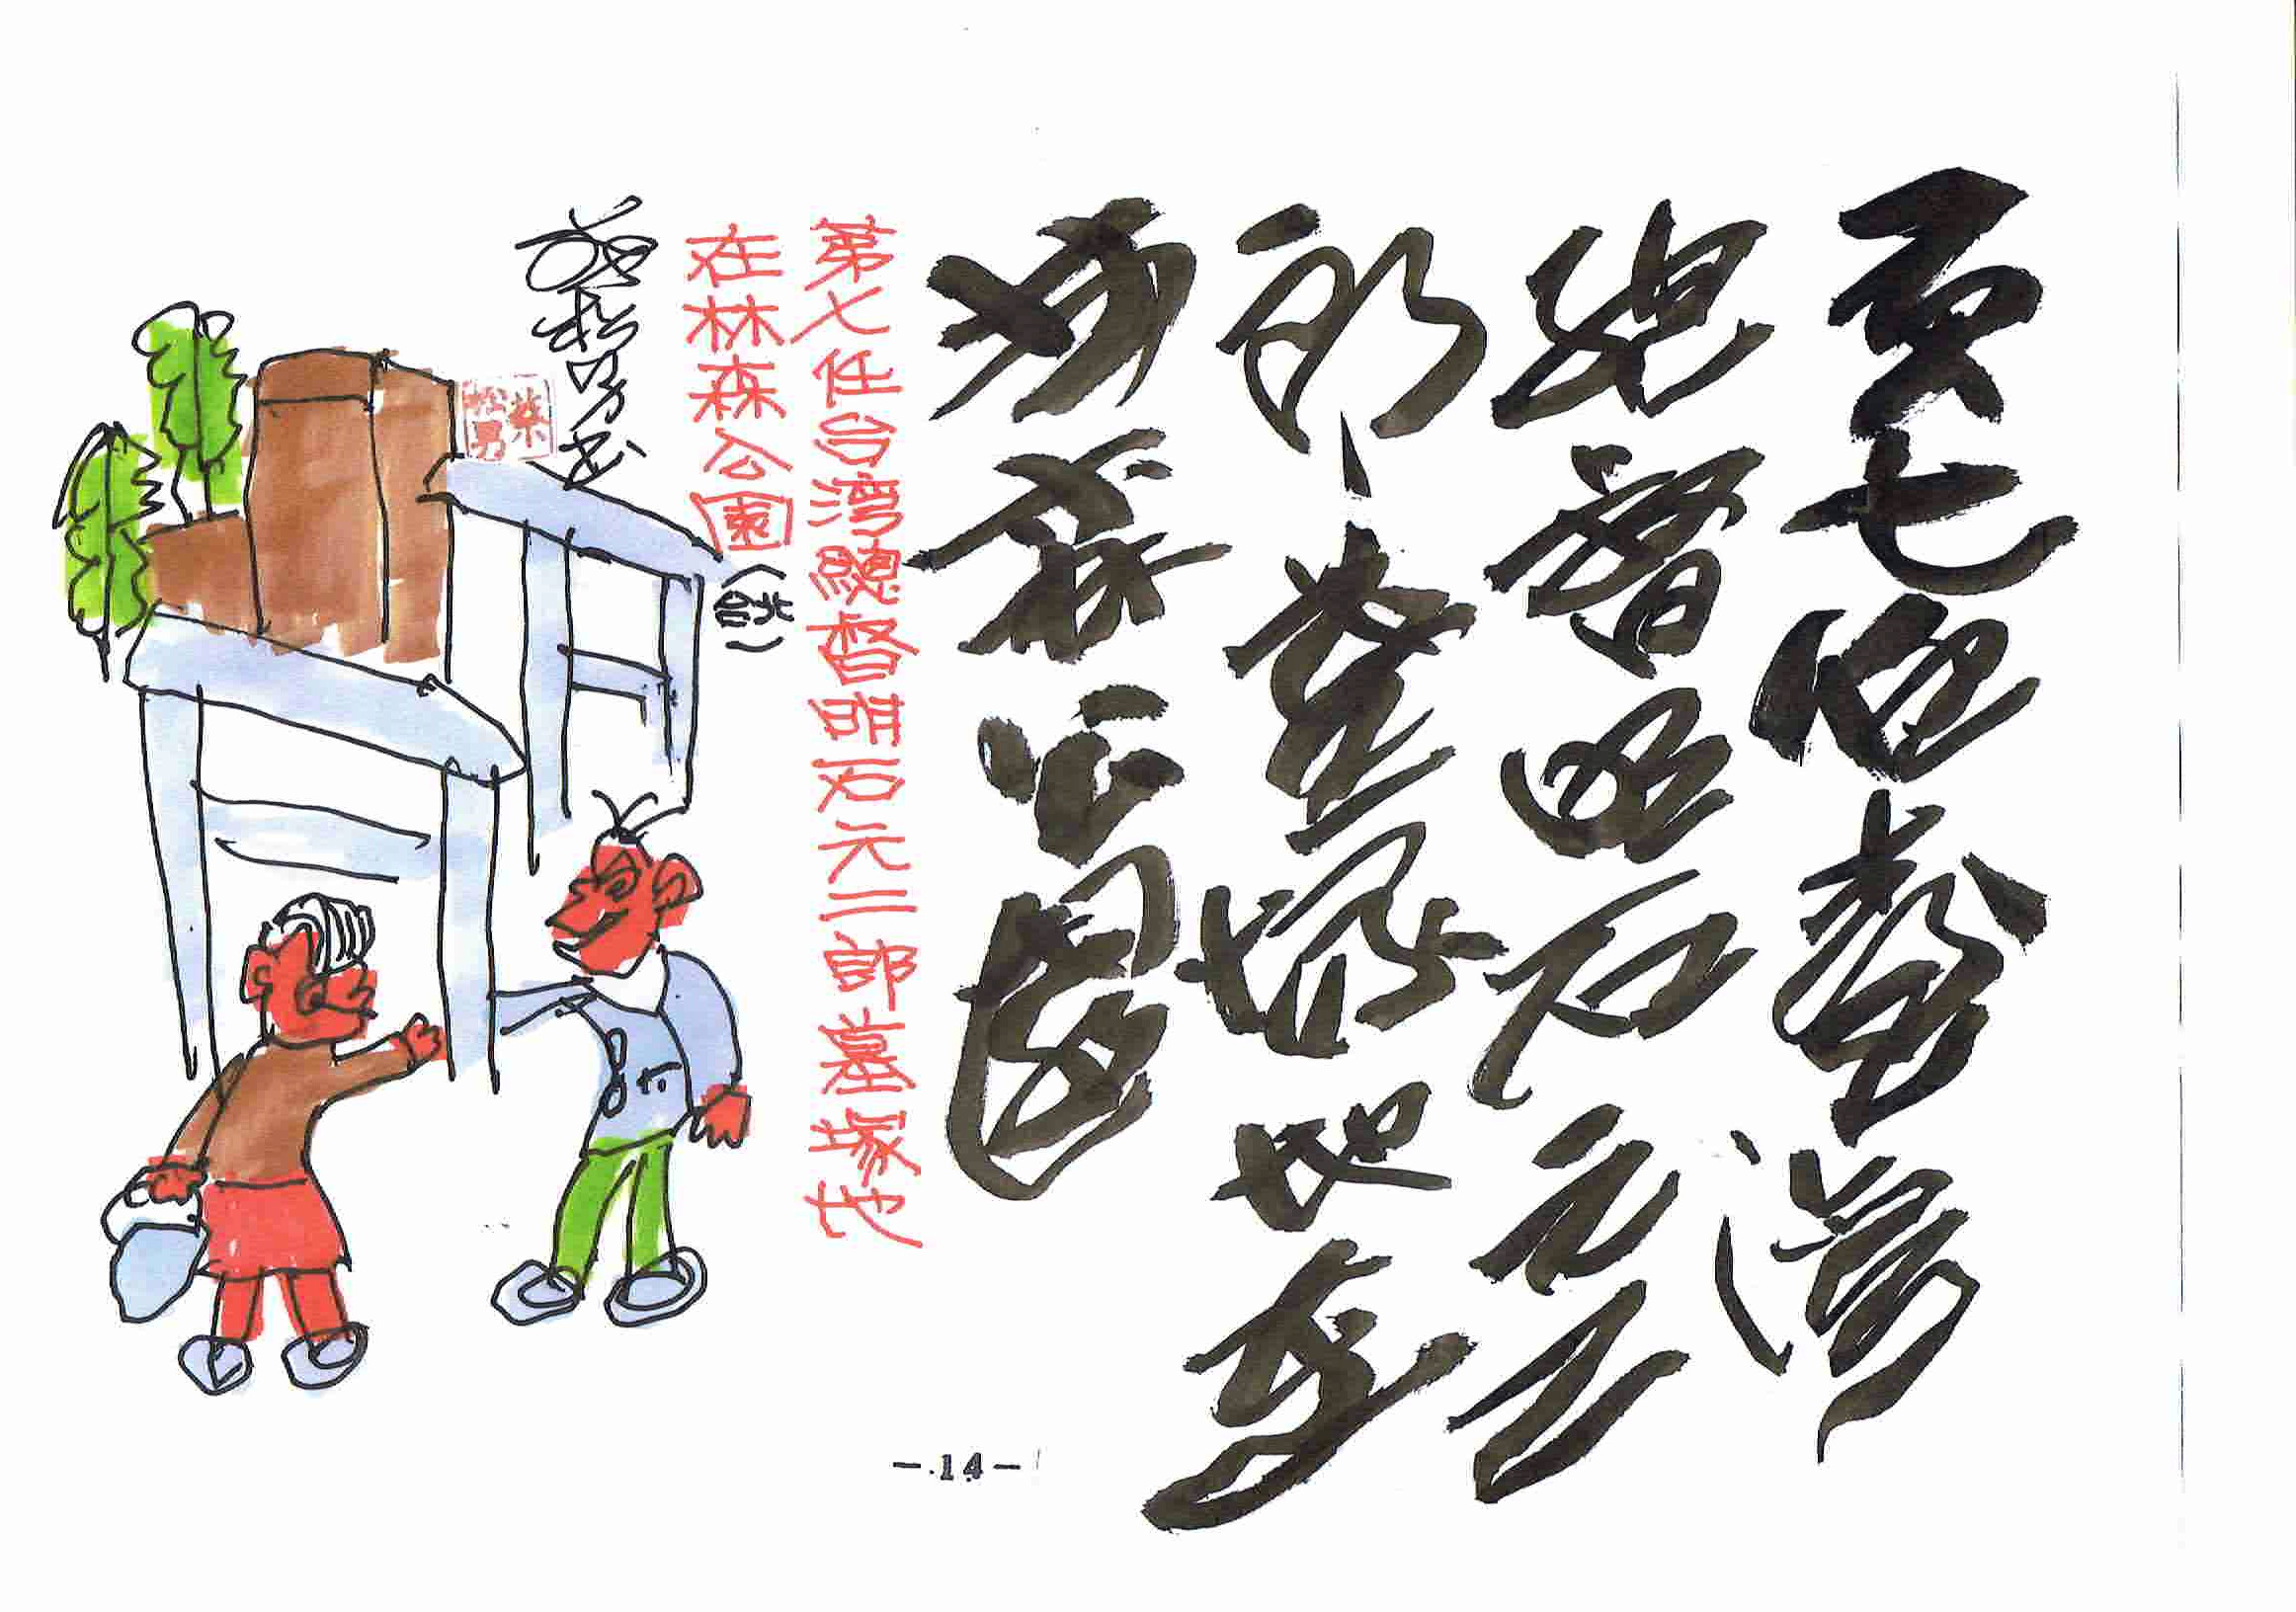 第七任臺灣
總督明石元二
郎墓塚地在
林森公園
第七任台湾總督明石元二郎墓塚地
在林森公園(台北)
葉松男
葉松男
-14-